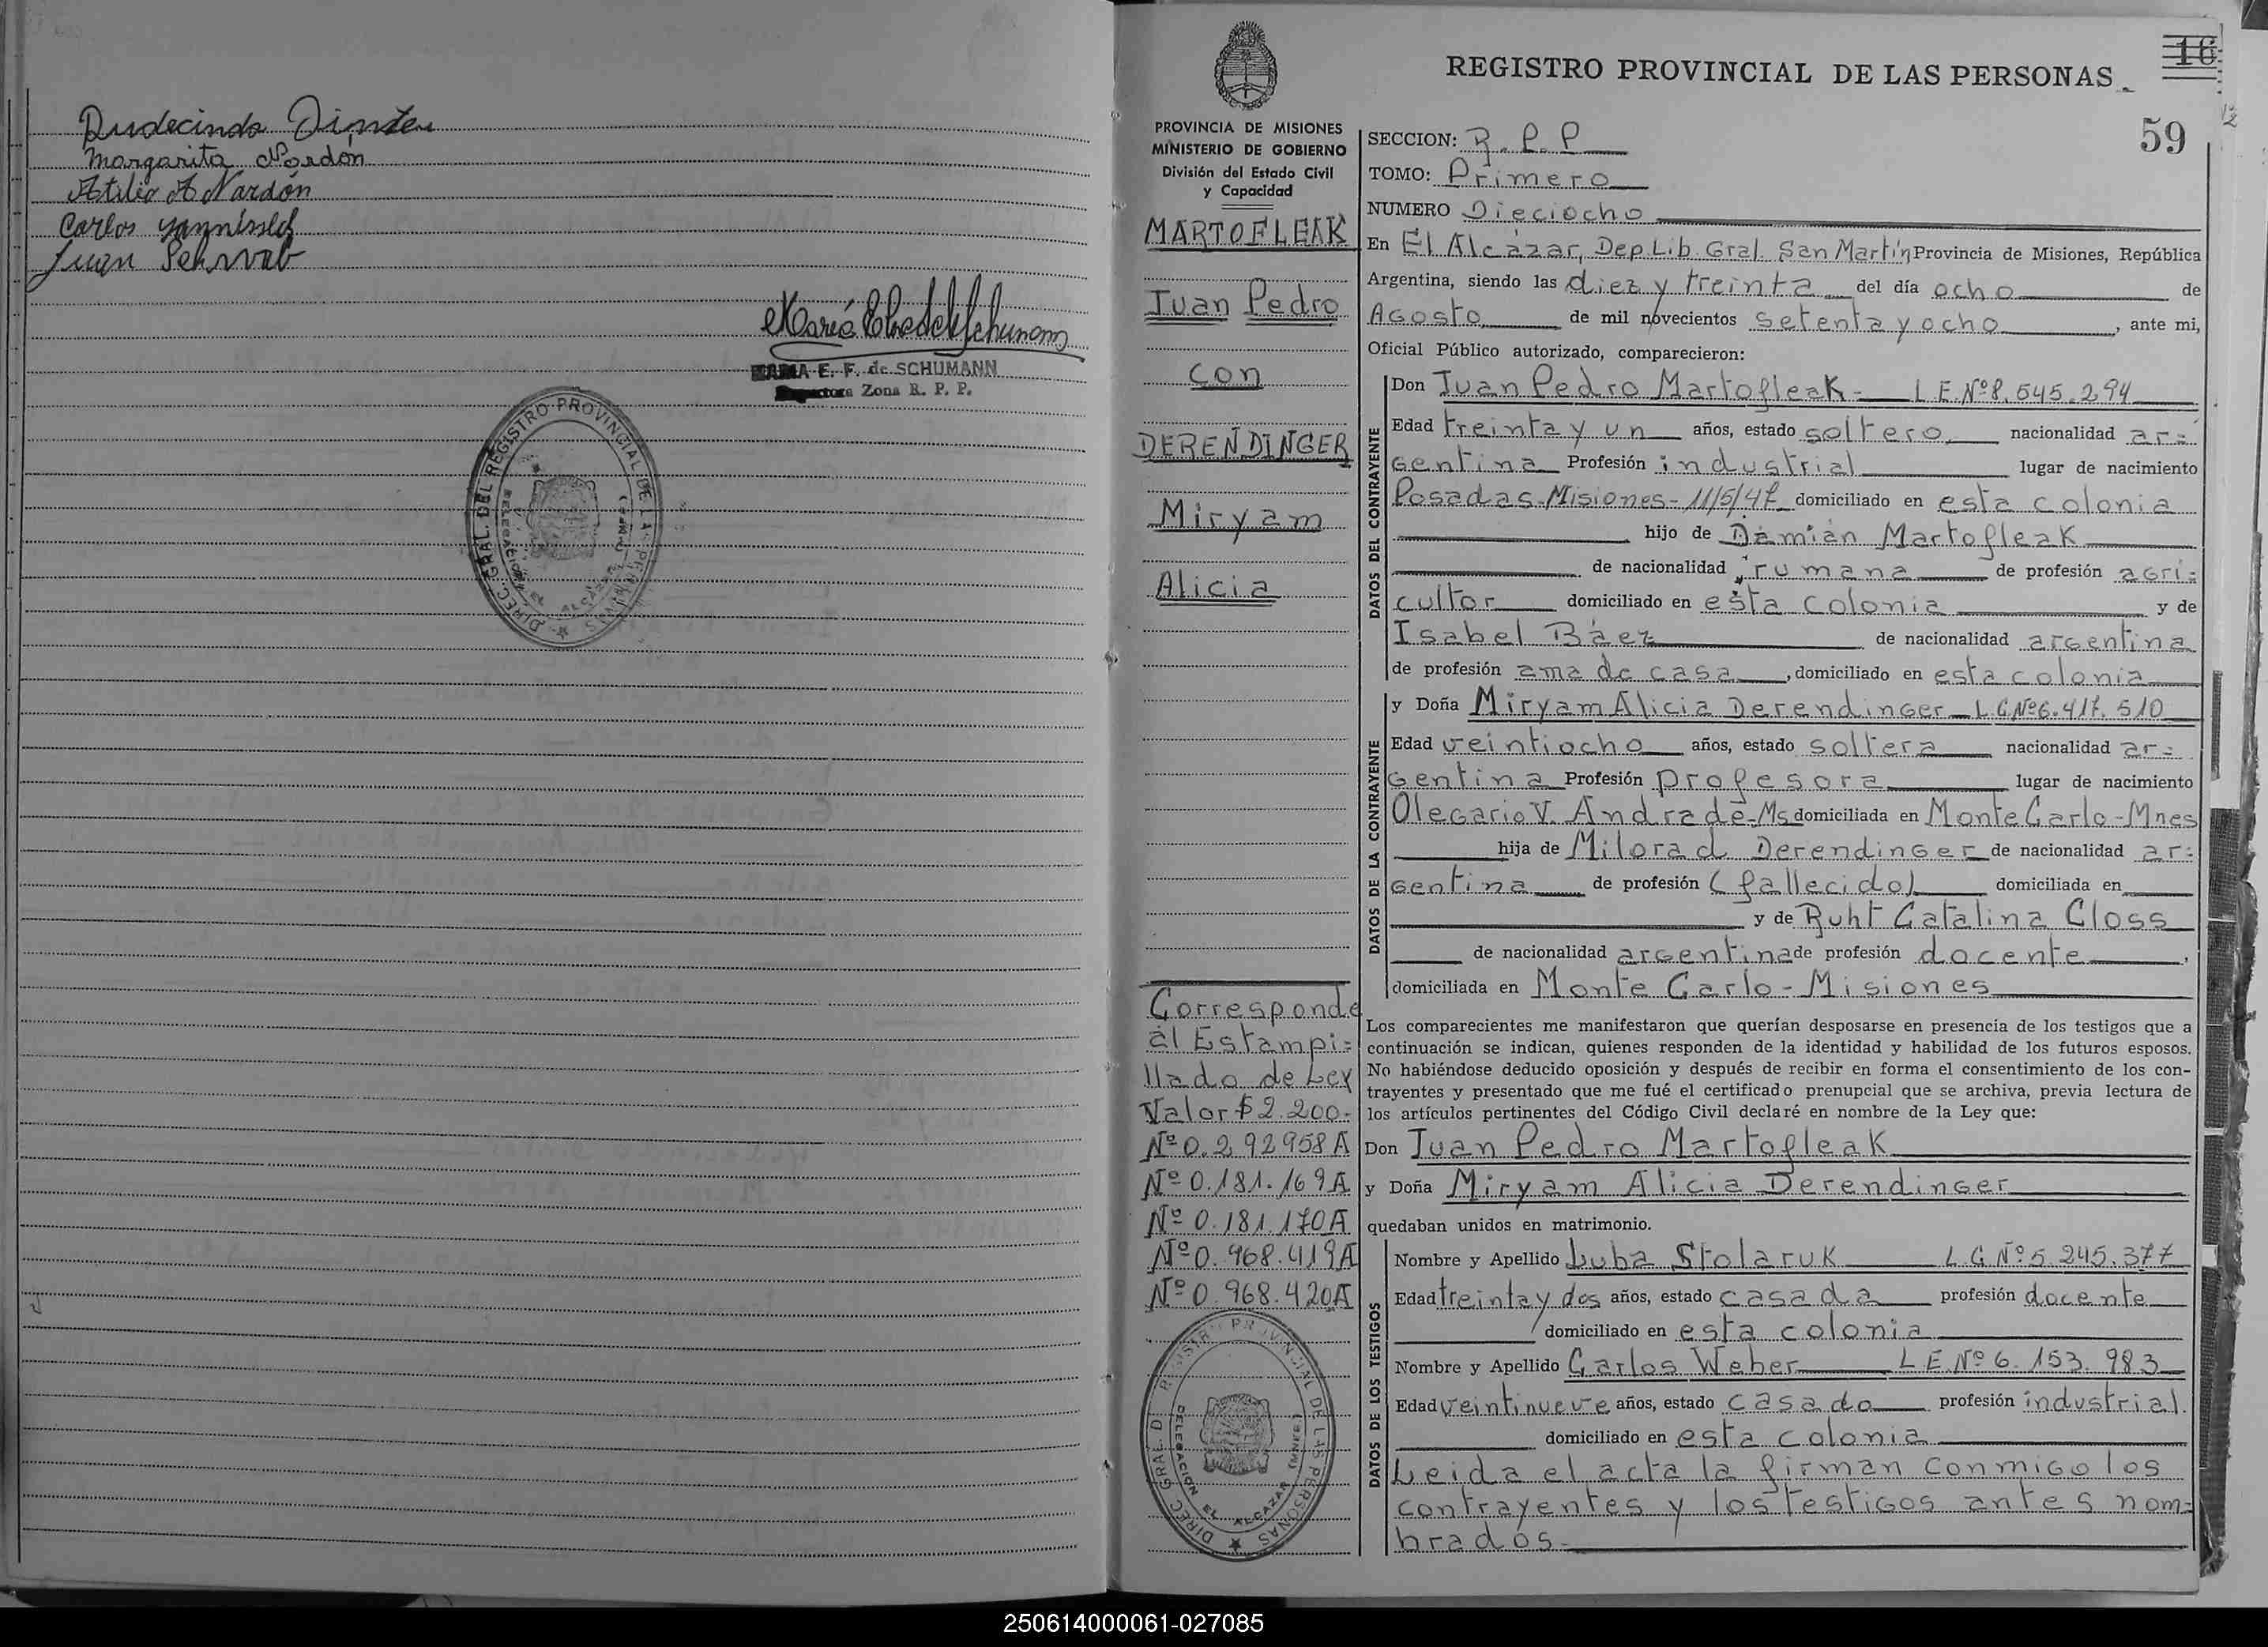 Rudecindo Dinter
Margarita Nardón
Atilio A Nardón
Carlos
Juan Schwab
MARIA E. F. de SCHUMANN
Inspectora Zona R. P. P.
DIREC. GRAL. DEL REGISTRO PROVINCIAL DE LAS PERSONAS
DELEGACION EL ALCAZAR (MNES.)
16
REGISTRO PROVINCIAL DE LAS PERSONAS
59
PROVINCIA DE MISIONES
MINISTERIO DE GOBIERNO
División del Estado Civil
y Capacidad
MARTOFLEAK
Juan Pedro
con
DERENDINGER
Miryam
Alicia
Corresponde
al Estampi=
llado de Ley
Valor $2.200.-
Nº 0.292958A
Nº 0.181.169A
Nº 0.181.170A
Nº 0.968.419A
Nº 0.968.420A
DIREC. GRAL. D REGISTRO PROVINCIAL DE LAS PERSONAS
DELEGACION EL ALCAZAR (MNES.)
SECCION: R.P.P
TOMO: Primero
NUMERO Dieciocho
En El Alcázar, Dep. Lib. Gral. San Martín Provincia de Misiones, República
Argentina, siendo las diez y treinta del día ocho de
Agosto de mil novecientos setenta y ocho, ante mi,
Oficial Público autorizado, comparecieron:
DATOS DEL CONTRAYENTE
Don Juan Pedro Martofleak - L.E.Nº8.545.294
Edad treinta y un años, estado soltero nacionalidad ar=
gentina Profesión industrial lugar de nacimiento
Posadas-Misiones-11/5/47 domiciliado en esta colonia
hijo de Damián Martofleak
de nacionalidad rumana de profesión agri=
cultor domiciliado en esta colonia y de
Isabel Báez de nacionalidad argentina
de profesión ama de casa, domiciliado en esta colonia
DATOS DE LA CONTRAYENTE
y Doña Miryam Alicia Derendinger L.C.Nº6.417.510
Edad veintiocho años, estado soltera nacionalidad ar=
gentina Profesión profesora lugar de nacimiento
Olegario V. Andrade-Ms domiciliada en Monte Carlo-Mnes
hija de Milorad Derendinger de nacionalidad ar=
gentina de profesión (fallecido) domiciliada en
y de Ruht Catalina Closs
de nacionalidad argentina de profesión docente,
domiciliada en Monte Carlo-Misiones
Los comparecientes me manifestaron que querían desposarse en presencia de los testigos que a
continuación se indican, quienes responden de la identidad y habilidad de los futuros esposos.
No habiéndose deducido oposición y después de recibir en forma el consentimiento de los con-
trayentes y presentado que me fué el certificado prenupcial que se archiva, previa lectura de
los artículos pertinentes del Código Civil declaré en nombre de la Ley que:
Don Juan Pedro Martofleak
y Doña Miryam Alicia Derendinger
quedaban unidos en matrimonio.
DATOS DE LOS TESTIGOS
Nombre y Apellido Luba Stolaruk L.C Nº5.245.377
Edad treinta y dos años, estado casada profesión docente
domiciliado en esta colonia
Nombre y Apellido Carlos Weber L.E.Nº6.153.983
Edad veintinueve años, estado casado profesión industrial.
domiciliado en esta colonia
Leida el acta la firman conmigo los
contrayentes y los testigos antes nom=
brados.
250614000061-027085